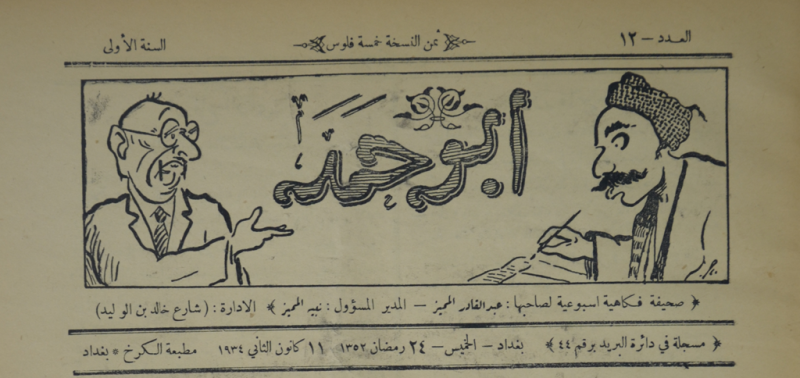 العدد – ١٢
ثمن النسخة خمسة فلوس
السنة الأولى
أبو حمد
﴿ صحيفة فكاهية اسبوعية لصاحبها : عبدالقادر المميز – المدير المسؤول : نبيه المميز ﴾ الادارة : ( شارع خالد بن الوليد )
﴿ مسجلة في دائرة البريد برقم ٤٤ ﴾ بغداد – الخميس – ٢٤ رمضان ١٣٥٢ ١١ كانون الثاني ١٩٣٤ مطبعة الكرخ * بغداد